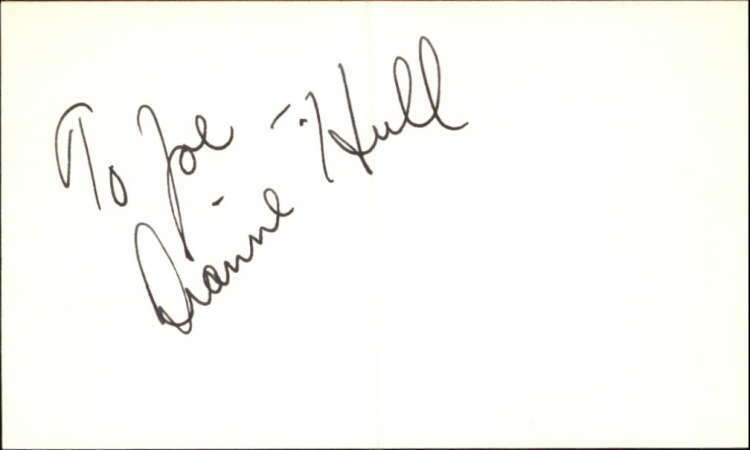 To Joe -
Dianne Hull